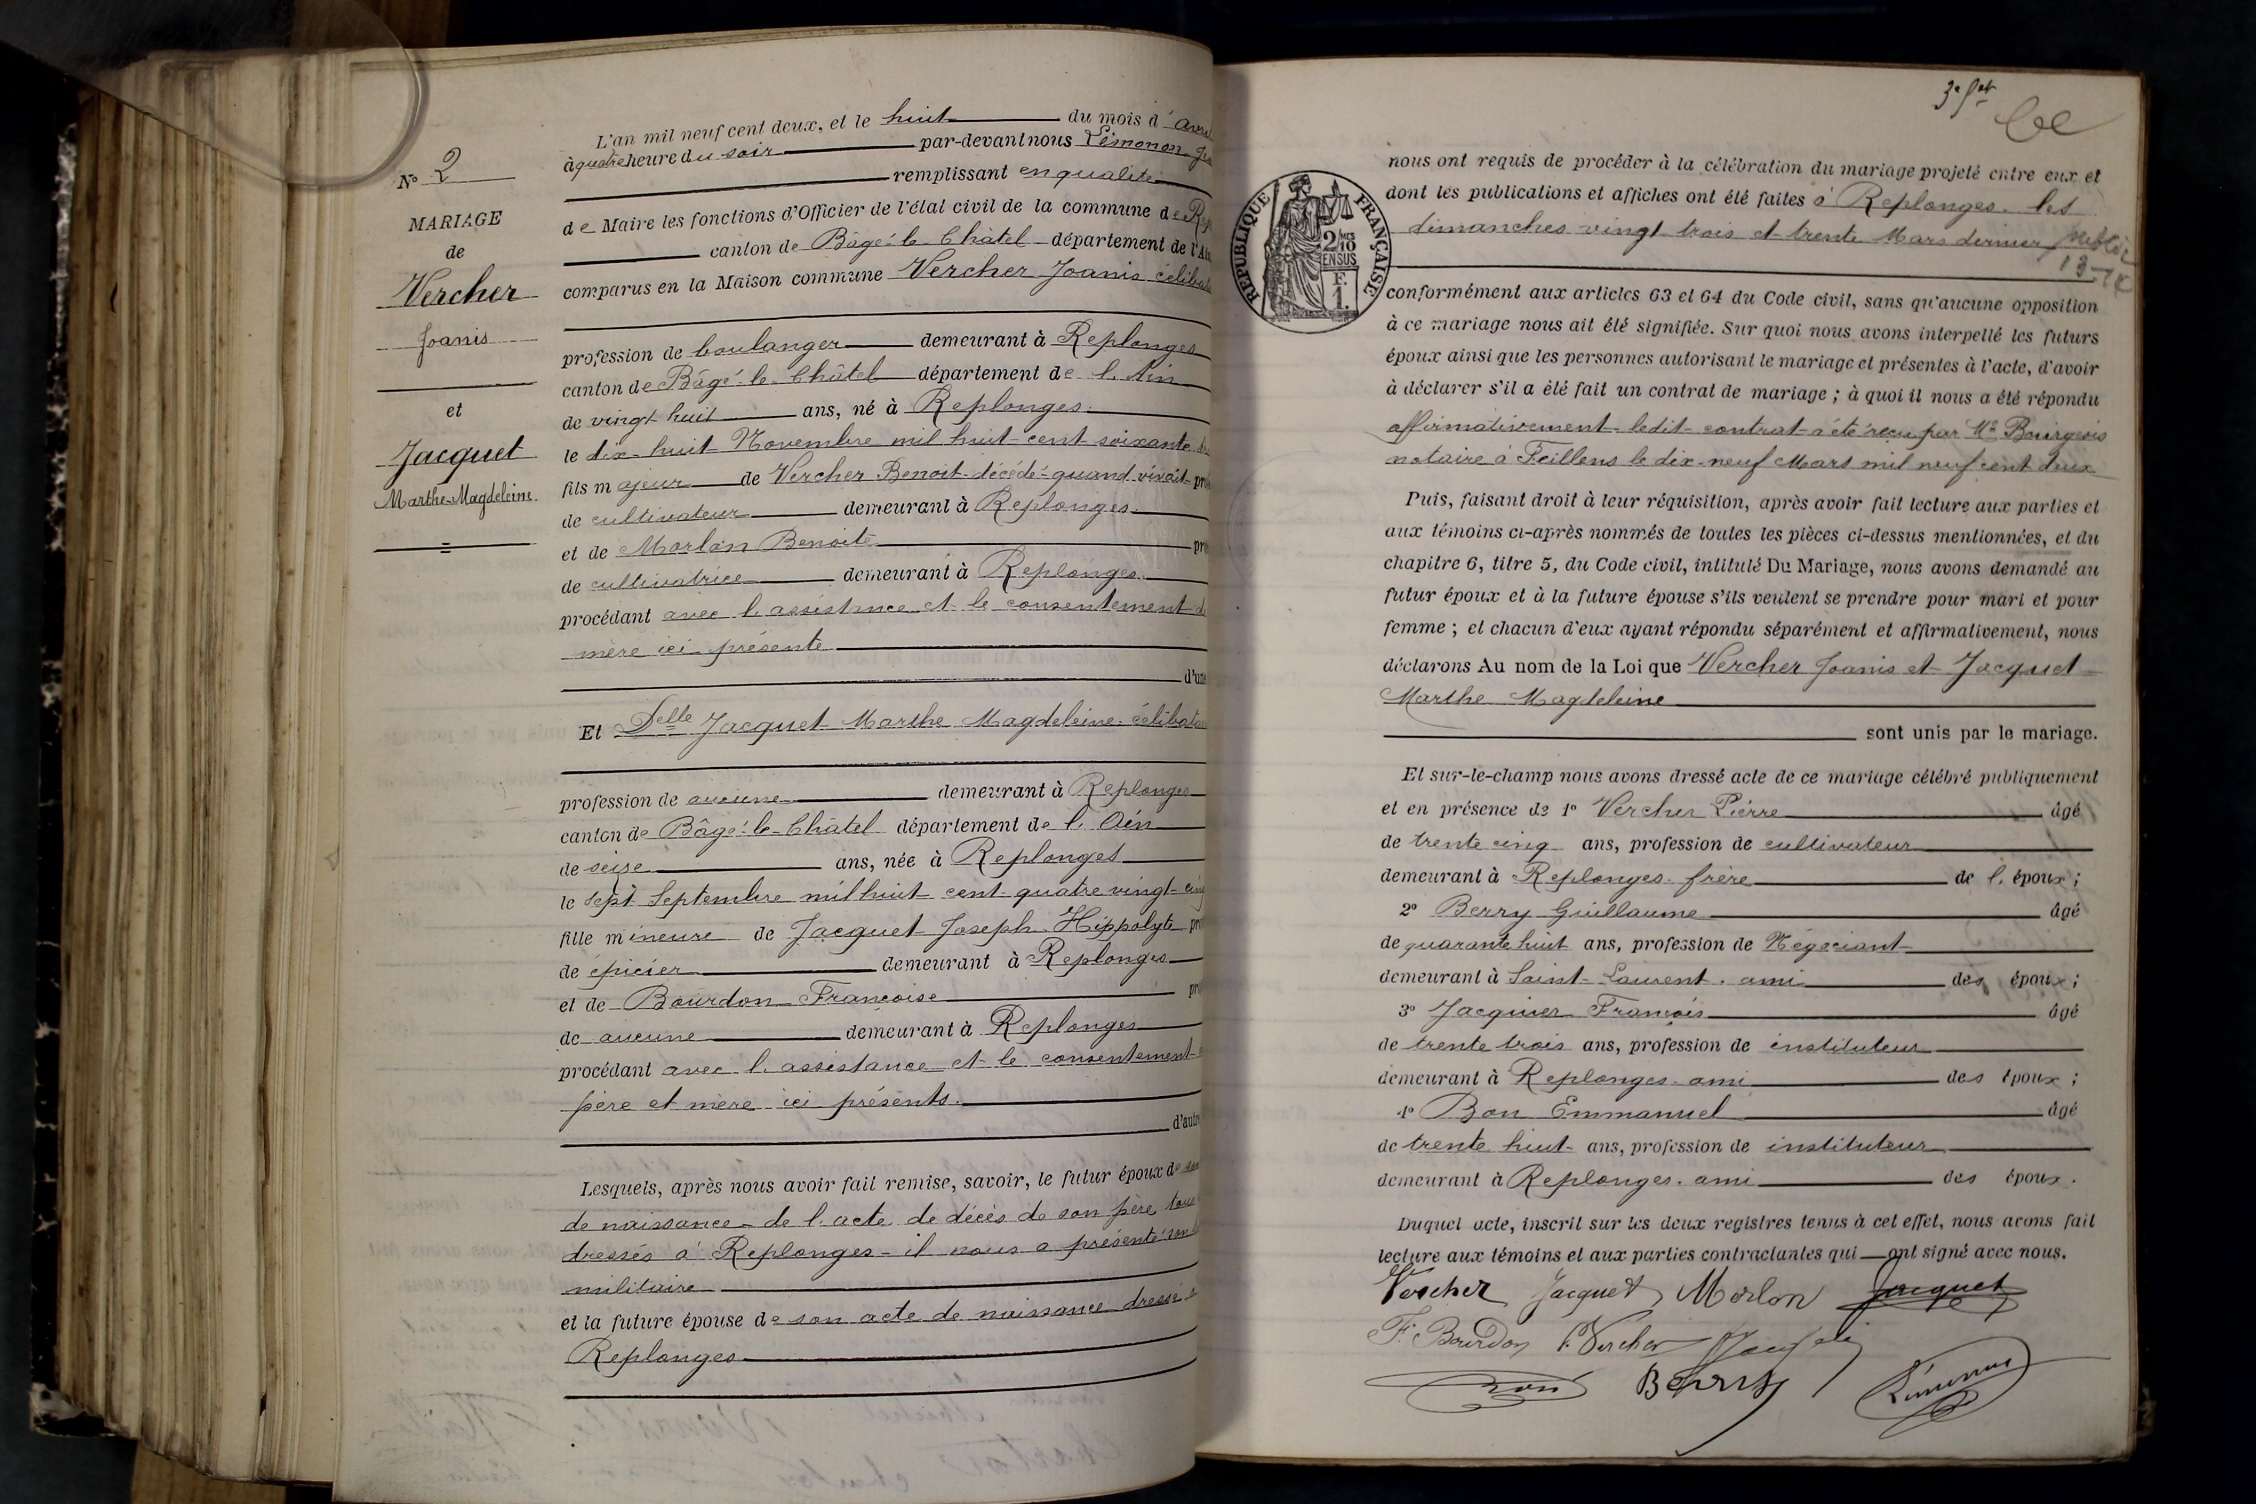 N° 2
MARIAGE
de
Vercher
Joanis
et
Jacquet
Marthe-Magdeleine
L'an mil neuf cent deux, et le huit du mois d'avril
à quatre heure du soir par-devant nous Limonon
remplissant en qualité
de Maire les fonctions d'Officier de l'état civil de la commune de Rep
canton de Bâgé-le-Châtel département de l'Ain
comparus en la Maison commune Vercher Joanis célibat
profession de boulanger demeurant à Replonges
canton de Bâgé-le-Châtel département de l'Ain
de vingt huit ans, né à Replonges
le dix-huit Novembre mil huit-cent-soixante
fils majeur de Vercher Benoit décédé quand vivait pr
de cultivateur demeurant à Replonges
et de Morlon Benoite pr
de cultivatrice demeurant à Replonges
procédant avec l'assistance et le consentement d
mère ici présente
d'une
Et Delle Jacquet Marthe Magdeleine célibata
profession de aucune demeurant à Replonges
canton de Bâgé-le-Châtel département de l'Ain
de seize ans, née à Replonges
le sept Septembre mil huit cent quatre vingt-cinq
fille mineure de Jacquet Joseph Hippolyte pr
de épicier demeurant à Replonges
et de Bourdon Françoise pr
de aucune demeurant à Replonges
procédant avec l'assistance et le consentement
père et mère ici présents.
d'autre
Lesquels, après nous avoir fait remise, savoir, le futur époux de son
de naissance de l'acte de décès de son père tous
dressés à Replonges - il nous a présenté son l
militaire
et la future épouse de son acte de naissance dressé à
Replonges
3e f et
RÉPUBLIQUE FRANÇAISE
2/10
EN SUS
F.
1.
nous ont requis de procéder à la célébration du mariage projeté entre eux et
dont les publications et affiches ont été faites à Replonges les
dimanches vingt trois et trente Mars dernier
conformément aux articles 63 et 64 du Code civil, sans qu'aucune opposition
à ce mariage nous ait été signifiée. Sur quoi nous avons interpellé les futurs
époux ainsi que les personnes autorisant le mariage et présentes à l'acte, d'avoir
à déclarer s'il a été fait un contrat de mariage ; à quoi il nous a été répondu
affirmativement ledit contrat a été reçu par Me Bourgeois
notaire à Feillens le dix-neuf Mars mil neuf cent deux
Puis, faisant droit à leur réquisition, après avoir fait lecture aux parties et
aux témoins ci-après nommés de toutes les pièces ci-dessus mentionnées, et du
chapitre 6, titre 5, du Code civil, intitulé Du Mariage, nous avons demandé au
futur époux et à la future épouse s'ils veulent se prendre pour mari et pour
femme ; et chacun d'eux ayant répondu séparément et affirmativement, nous
déclarons Au nom de la Loi que Vercher Joanis et Jacquet
Marthe Magdeleine
sont unis par le mariage.
Et sur-le-champ nous avons dressé acte de ce mariage célébré publiquement
et en présence de 1° Vercher Pierre âgé
de trente cinq ans, profession de cultivateur
demeurant à Replonges frère de l'époux ;
2° Berry Guillaume âgé
de quarante huit ans, profession de Négociant
demeurant à Saint-Laurent. ami des époux ;
3° Jacquier François âgé
de trente trois ans, profession de instituteur
demeurant à Replonges. ami des époux ;
4° Bon Emmanuel âgé
de trente huit ans, profession de instituteur
demeurant à Replonges. ami des époux.
Duquel acte, inscrit sur les deux registres tenus à cet effet, nous avons fait
lecture aux témoins et aux parties contractantes qui ont signé avec nous.
Vercher Jacquet Morlon Jacquet
F. Bourdon P. Vercher
Bon Berry Limonon